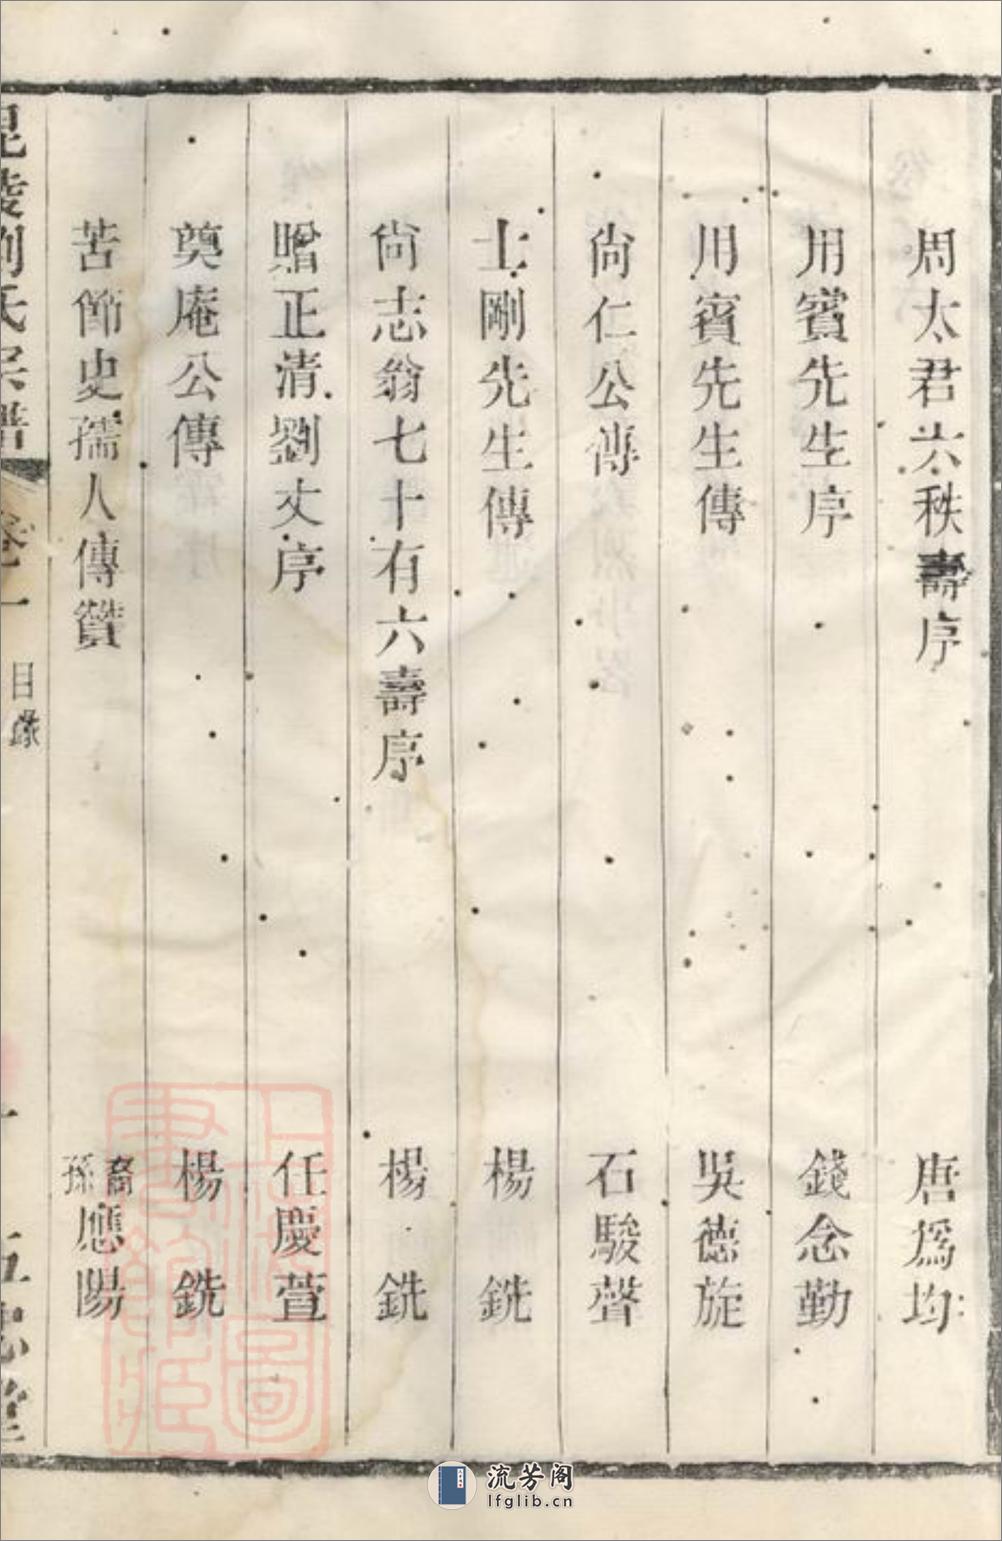 周太君六秩壽序 唐爲均
用賓先生序 錢念勤
用賓先生傳 吳德旋
尙仁公傳 石駿聲
士剛先生傳 楊銑
尙志翁七十有六壽序 楊銑
贈正清劉丈序 任慶萱
奠庵公傳 楊銑
苦節史孺人傳贊 裔孫應陽
毘陵劉氏宗譜 卷一 目錄 五忠堂
上海圖書館藏
流芳阁
lfglib.cn